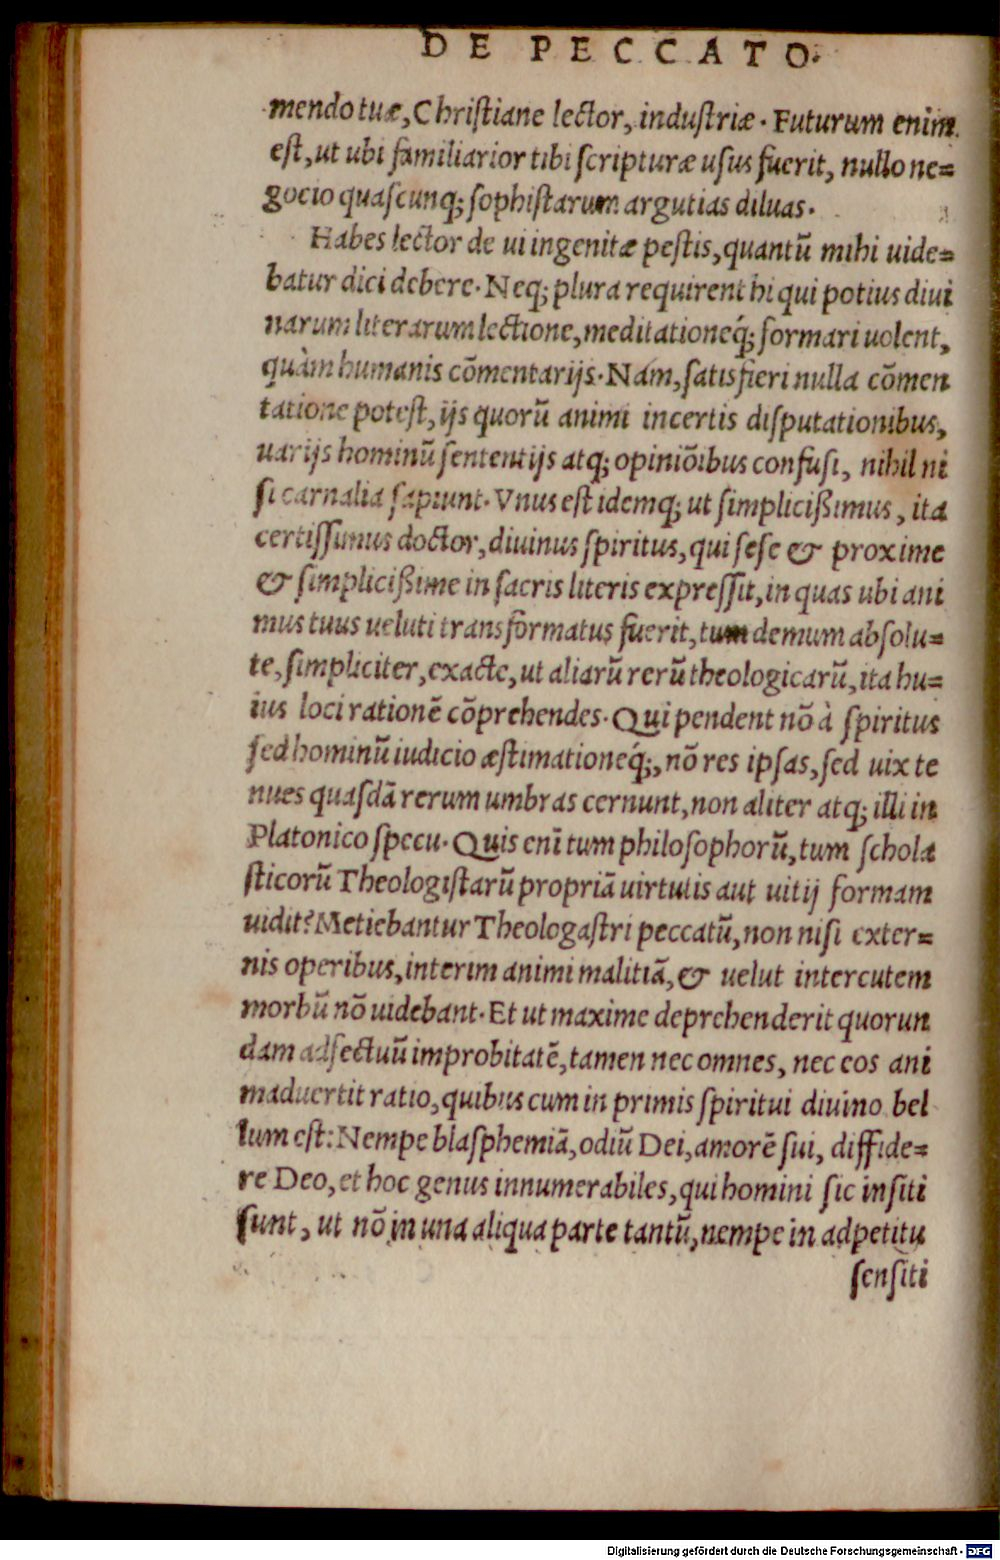 DE PECCATO.
mendo tuæ, Chriſtiane lector, induſtriæ. Futurum enim
eſt, ut ubi familiarior tibi ſcripturæ uſus fuerit, nullo ne=
gocio quaſcunq; ſophiſtarum argutias diluas.
Habes lector de ui ingenitæ peſtis, quantū mihi uide=
batur dici debere. Neq; plura requirent hi qui potius diui
narum literarum lectione, meditationeq́; formari uolent,
quàm humanis cōmentarijs. Nam, ſatisfieri nulla cōmen
tatione poteſt, ijs quorū animi incertis diſputationibus,
uarijs hominū ſententijs atq; opiniōibus confuſi, nihil ni
ſi carnalia ſapiunt. Vnus eſt idemq; ut ſimplicißimus, ita
certiſſimus doctor, diuinus ſpiritus, qui ſeſe & proxime
& ſimplicißime in ſacris literis expreſſit, in quas ubi ani
mus tuus ueluti transformatus fuerit, tum demum abſolu=
te, ſimpliciter, exacte, ut aliarū rerū theologicarū, ita hu=
ius loci rationē cōprehendes. Qui pendent nō à ſpiritus
ſed hominū iudicio æſtimationeq́;, nō res ipſas, ſed uix te
nues quaſdā rerum umbras cernunt, non aliter atq; illi in
Platonico ſpecu. Quis enī tum philoſophorū, tum ſchola
ſticorū Theologiſtarū propriā uirtutis aut uitij formam
uidit? Metiebantur Theologaſtri peccatū, non niſi exter=
nis operibus, interim animi malitiā, & uelut intercutem
morbū nō uidebant. Et ut maxime deprehenderit quorun
dam adfectuū improbitatē, tamen nec omnes, nec eos ani
maduertit ratio, quibus cum in primis ſpiritui diuino bel
lum eſt: Nempe blaſphemiā, odiū Dei, amorē ſui, diffide=
re Deo, et hoc genus innumerabiles, qui homini ſic inſiti
ſunt, ut nō in una aliqua parte tantū, nempe in adpetitu
ſenſiti
Digitalisierung gefördert durch die Deutsche Forschungsgemeinschaft - DFG